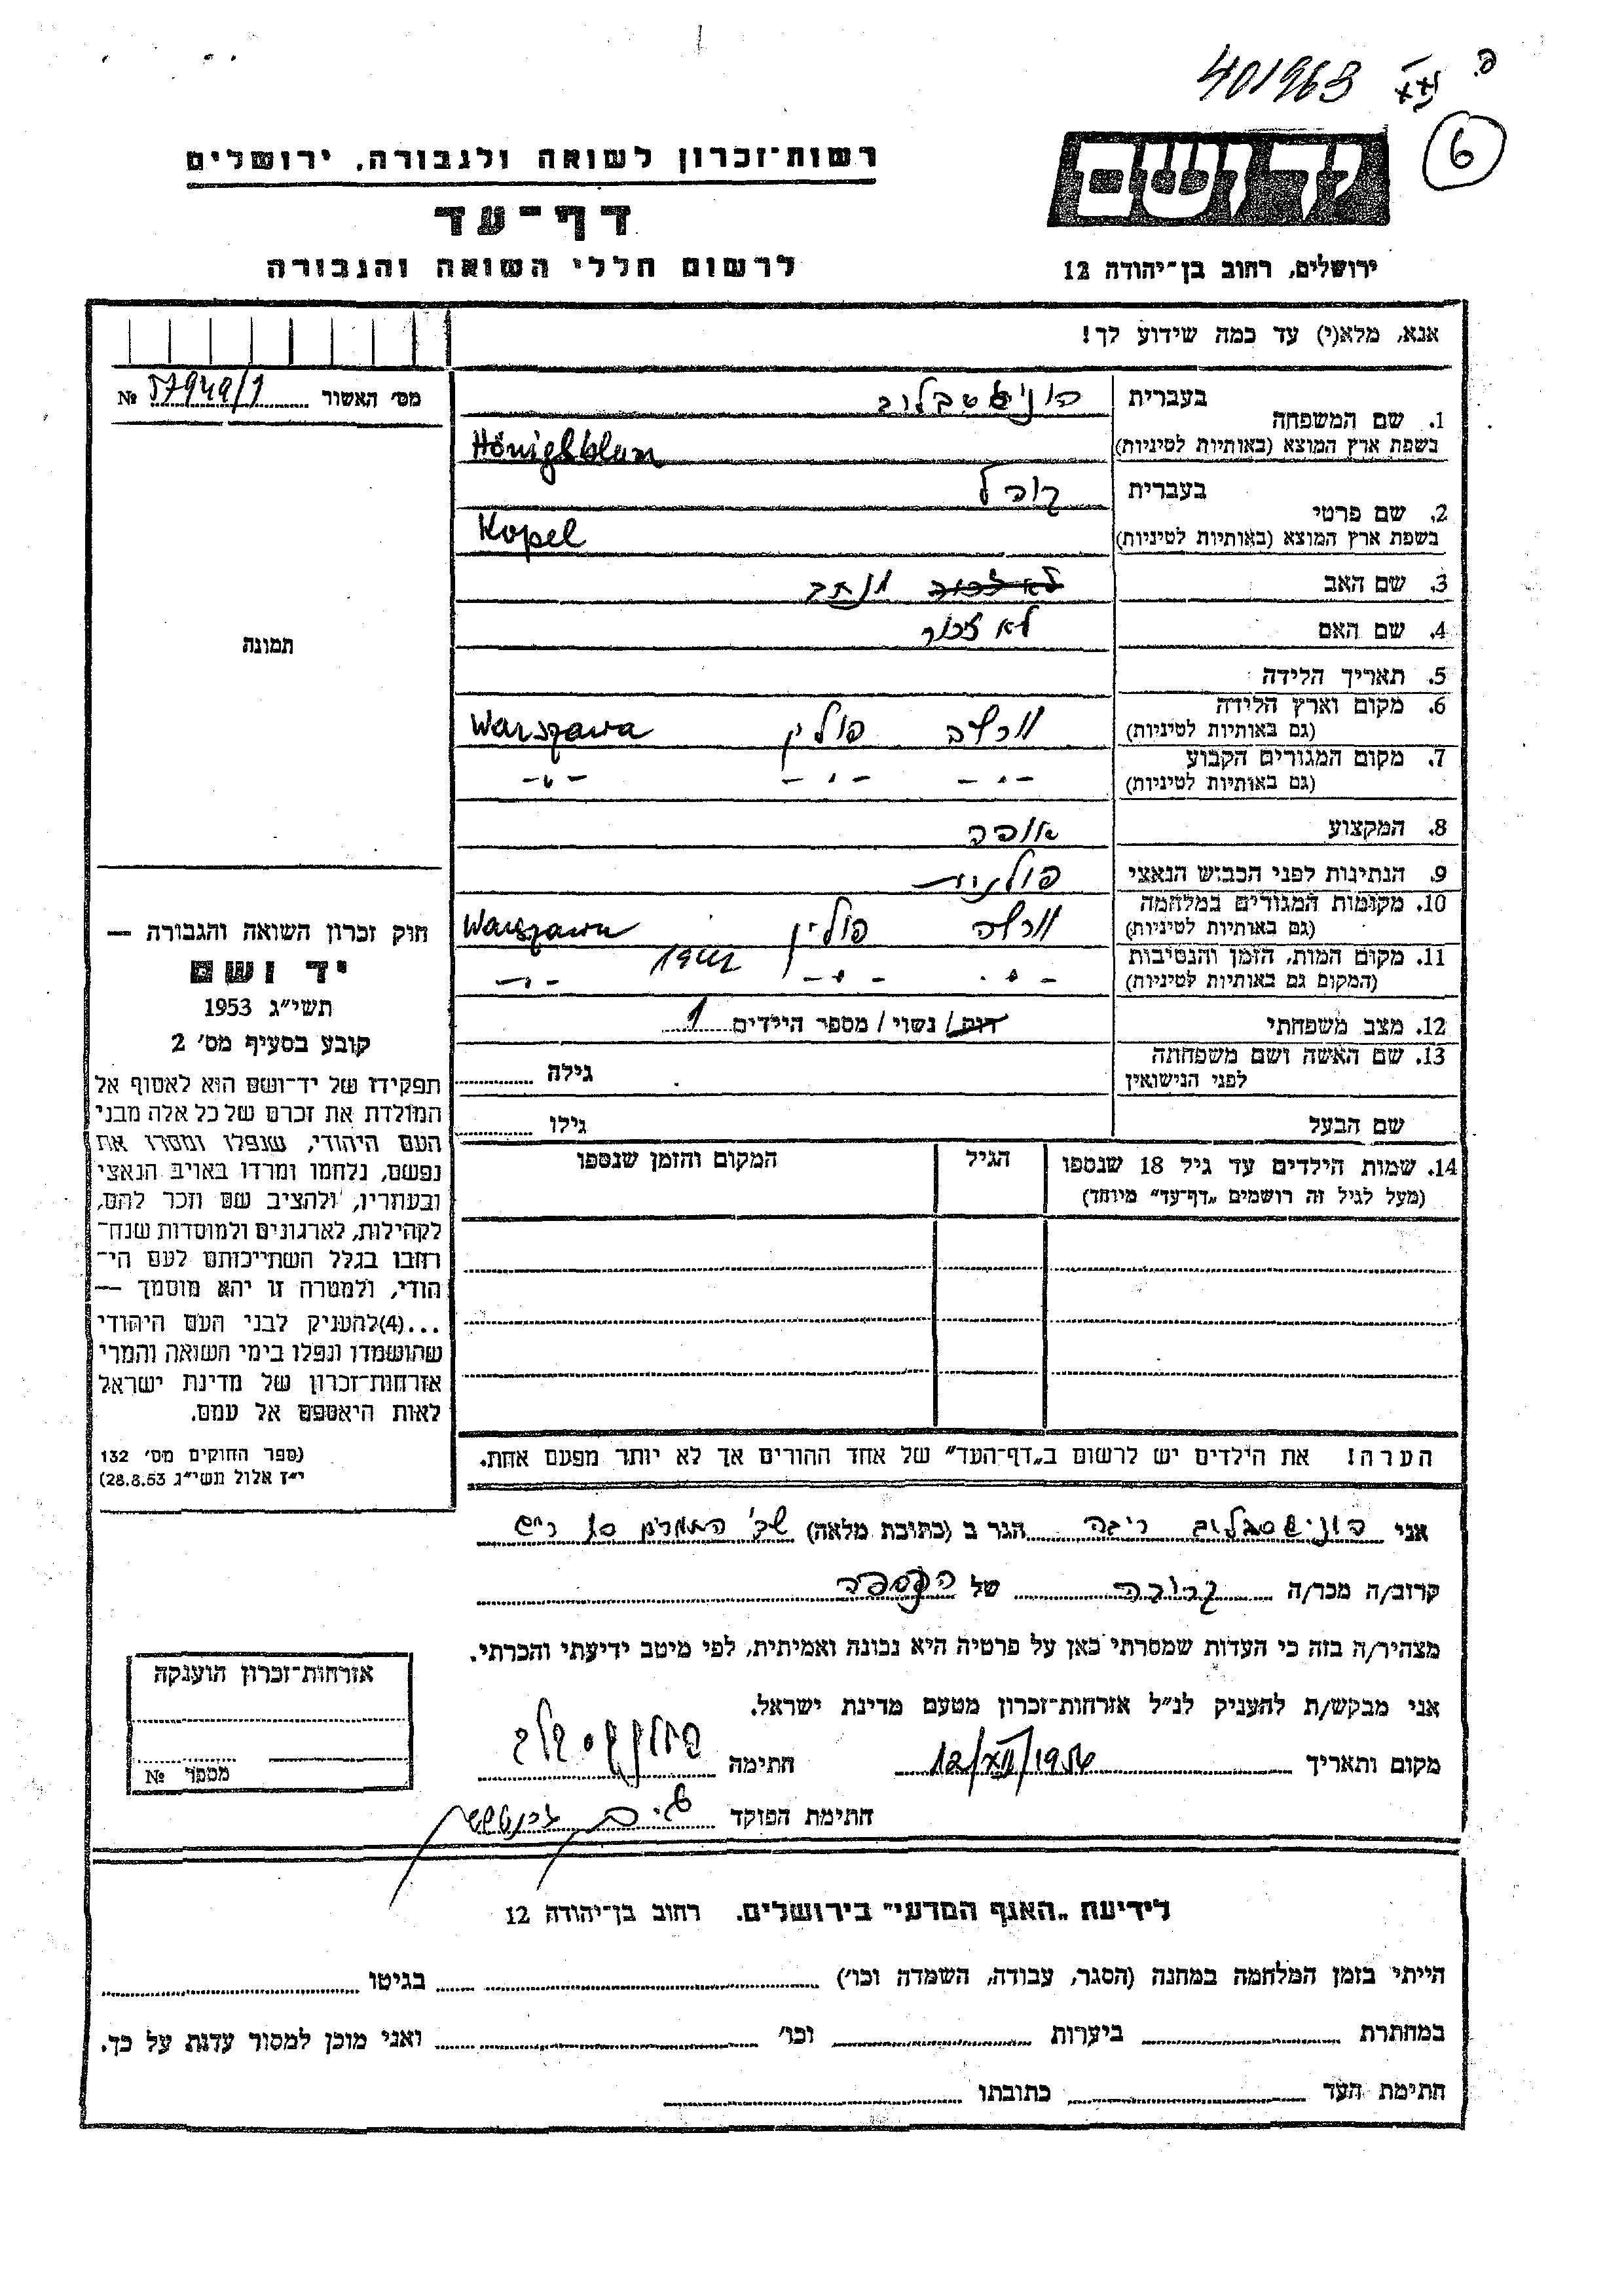 401963
6
יד ושם
רשות־זכרון לשואה ולגבורה, ירושלים
דף־עד
לרשום חללי השואה והגבורה
ירושלים, רחוב בן־יהודה 12
אנא, מלא(י) עד כמה שידוע לך!
מס׳ האשור 57949/1 №
1. שם המשפחה
בעברית
בשפת ארץ המוצא (באותיות לטיניות) Hönigblum
2. שם פרטי
בעברית קופל
בשפת ארץ המוצא (באותיות לטיניות) Kopel
3. שם האב
4. שם האם לא זכור
5. תאריך הלידה
6. מקום וארץ הלידה
(גם באותיות לטיניות) ורשה פולין Warszawa
7. מקום המגורים הקבוע
(גם באותיות לטיניות) -"- -"- -"-
8. המקצוע אופה
9. הנתינות לפני הכבוש הנאצי פולנית
10. מקומות המגורים במלחמה
(גם באותיות לטיניות) ורשה פולין Warszawa
11. מקום המות, הזמן והנסיבות
(המקום גם באותיות לטיניות) -"- -"- 1942 -"-
12. מצב משפחתי רווק / נשוי / מספר הילדים 1
13. שם האשה ושם משפחתה
לפני הנישואין גילה
שם הבעל גילו
14. שמות הילדים עד גיל 18 שנספו הגיל המקום והזמן שנספו
(מעל לגיל זה רושמים „דף־עד״ מיוחד)
הערה! את הילדים יש לרשום ב„דף־העד״ של אחד ההורים אך לא יותר מפעם אחת.
תמונה
חוק זכרון השואה והגבורה —
יד ושם
תשי״ג 1953
קובע בסעיף מס׳ 2
תפקידו של יד־ושם הוא לאסוף אל
המולדת את זכרם של כל אלה מבני
העם היהודי, שנפלו ומסרו את
נפשם, נלחמו ומרדו באויב הנאצי
ובעוזריו, ולהציב שם וזכר להם,
לקהילות, לארגונים ולמוסדות שנח־
רבו בגלל השתייכותם לעם הי־
הודי, ולמטרה זו יהא מוסמך —
...(4)להעניק לבני העם היהודי
שהושמדו ונפלו בימי השואה והמרי
אזרחות־זכרון של מדינת ישראל
לאות היאספם אל עמם.
(ספר החוקים מס׳ 132
י״ז אלול תשי״ג 28.8.53)
אני הגר ב (כתובת מלאה)
קרוב/ה מכר/ה קרובה של הנספה
מצהיר/ה בזה כי העדות שמסרתי כאן על פרטיה היא נכונה ואמיתית, לפי מיטב ידיעתי והכרתי.
אני מבקש/ת להעניק לנ״ל אזרחות־זכרון מטעם מדינת ישראל.
מקום ותאריך 12/XII/1956 חתימה
חתימת הפוקד
אזרחות־זכרון הוענקה
מספר №
לידיעת „האגף המדעי״ בירושלים. רחוב בן־יהודה 12
הייתי בזמן המלחמה במחנה (הסגר, עבודה, השמדה וכו׳) בגיטו
במחתרת ביערות וכו׳ ואני מוכן למסור עדות על כך.
חתימת העד כתובתו